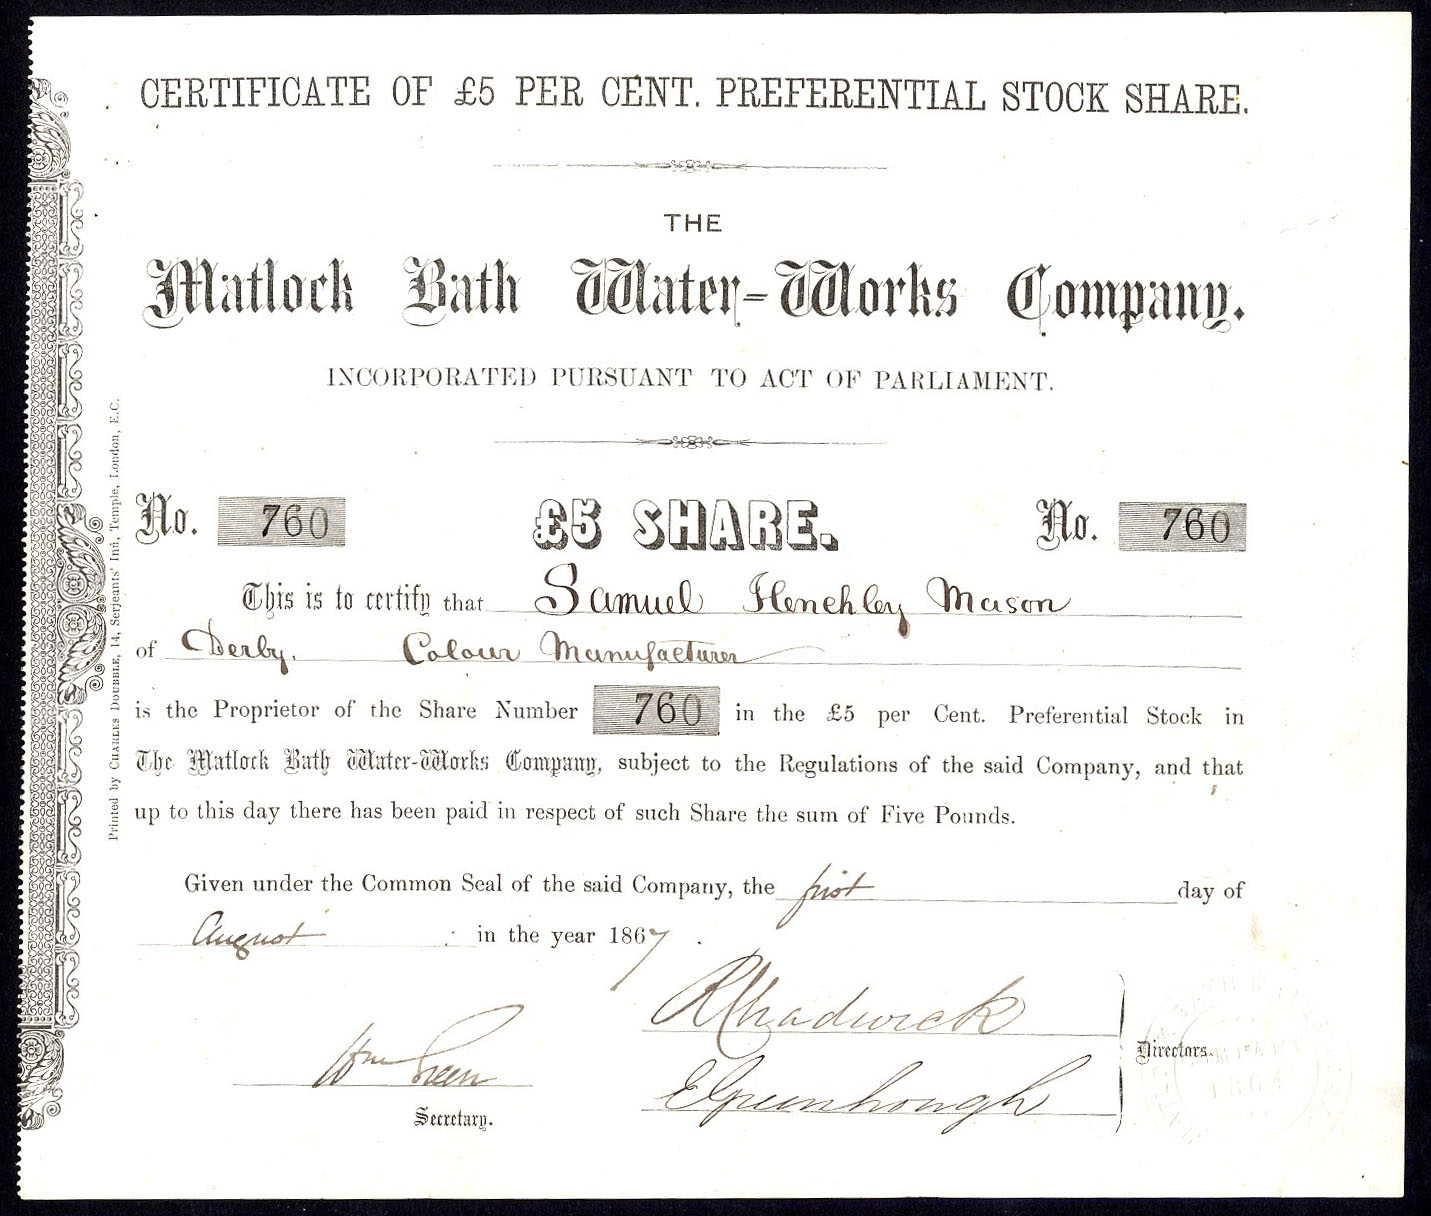 CERTIFICATE OF £5 PER CENT. PREFERENTIAL STOCK SHARE.
THE
Matlock Bath Water-Works Company.
INCORPORATED PURSUANT TO ACT OF PARLIAMENT.
No. 760 £5 SHARE. No. 760
This is to certify that Samuel Henchley Mason
of Derby. Colour Manufacturer
is the Proprietor of the Share Number 760 in the £5 per Cent. Preferential Stock in
The Matlock Bath Water-Works Company, subject to the Regulations of the said Company, and that
up to this day there has been paid in respect of such Share the sum of Five Pounds.
Given under the Common Seal of the said Company, the first day of
August in the year 1867.
R Chadwick
E Greenhough
Directors.
Wm Green
Secretary.
Printed by CHARLES DOUBBLE, 14, Serjeants' Inn, Temple, London, E.C.